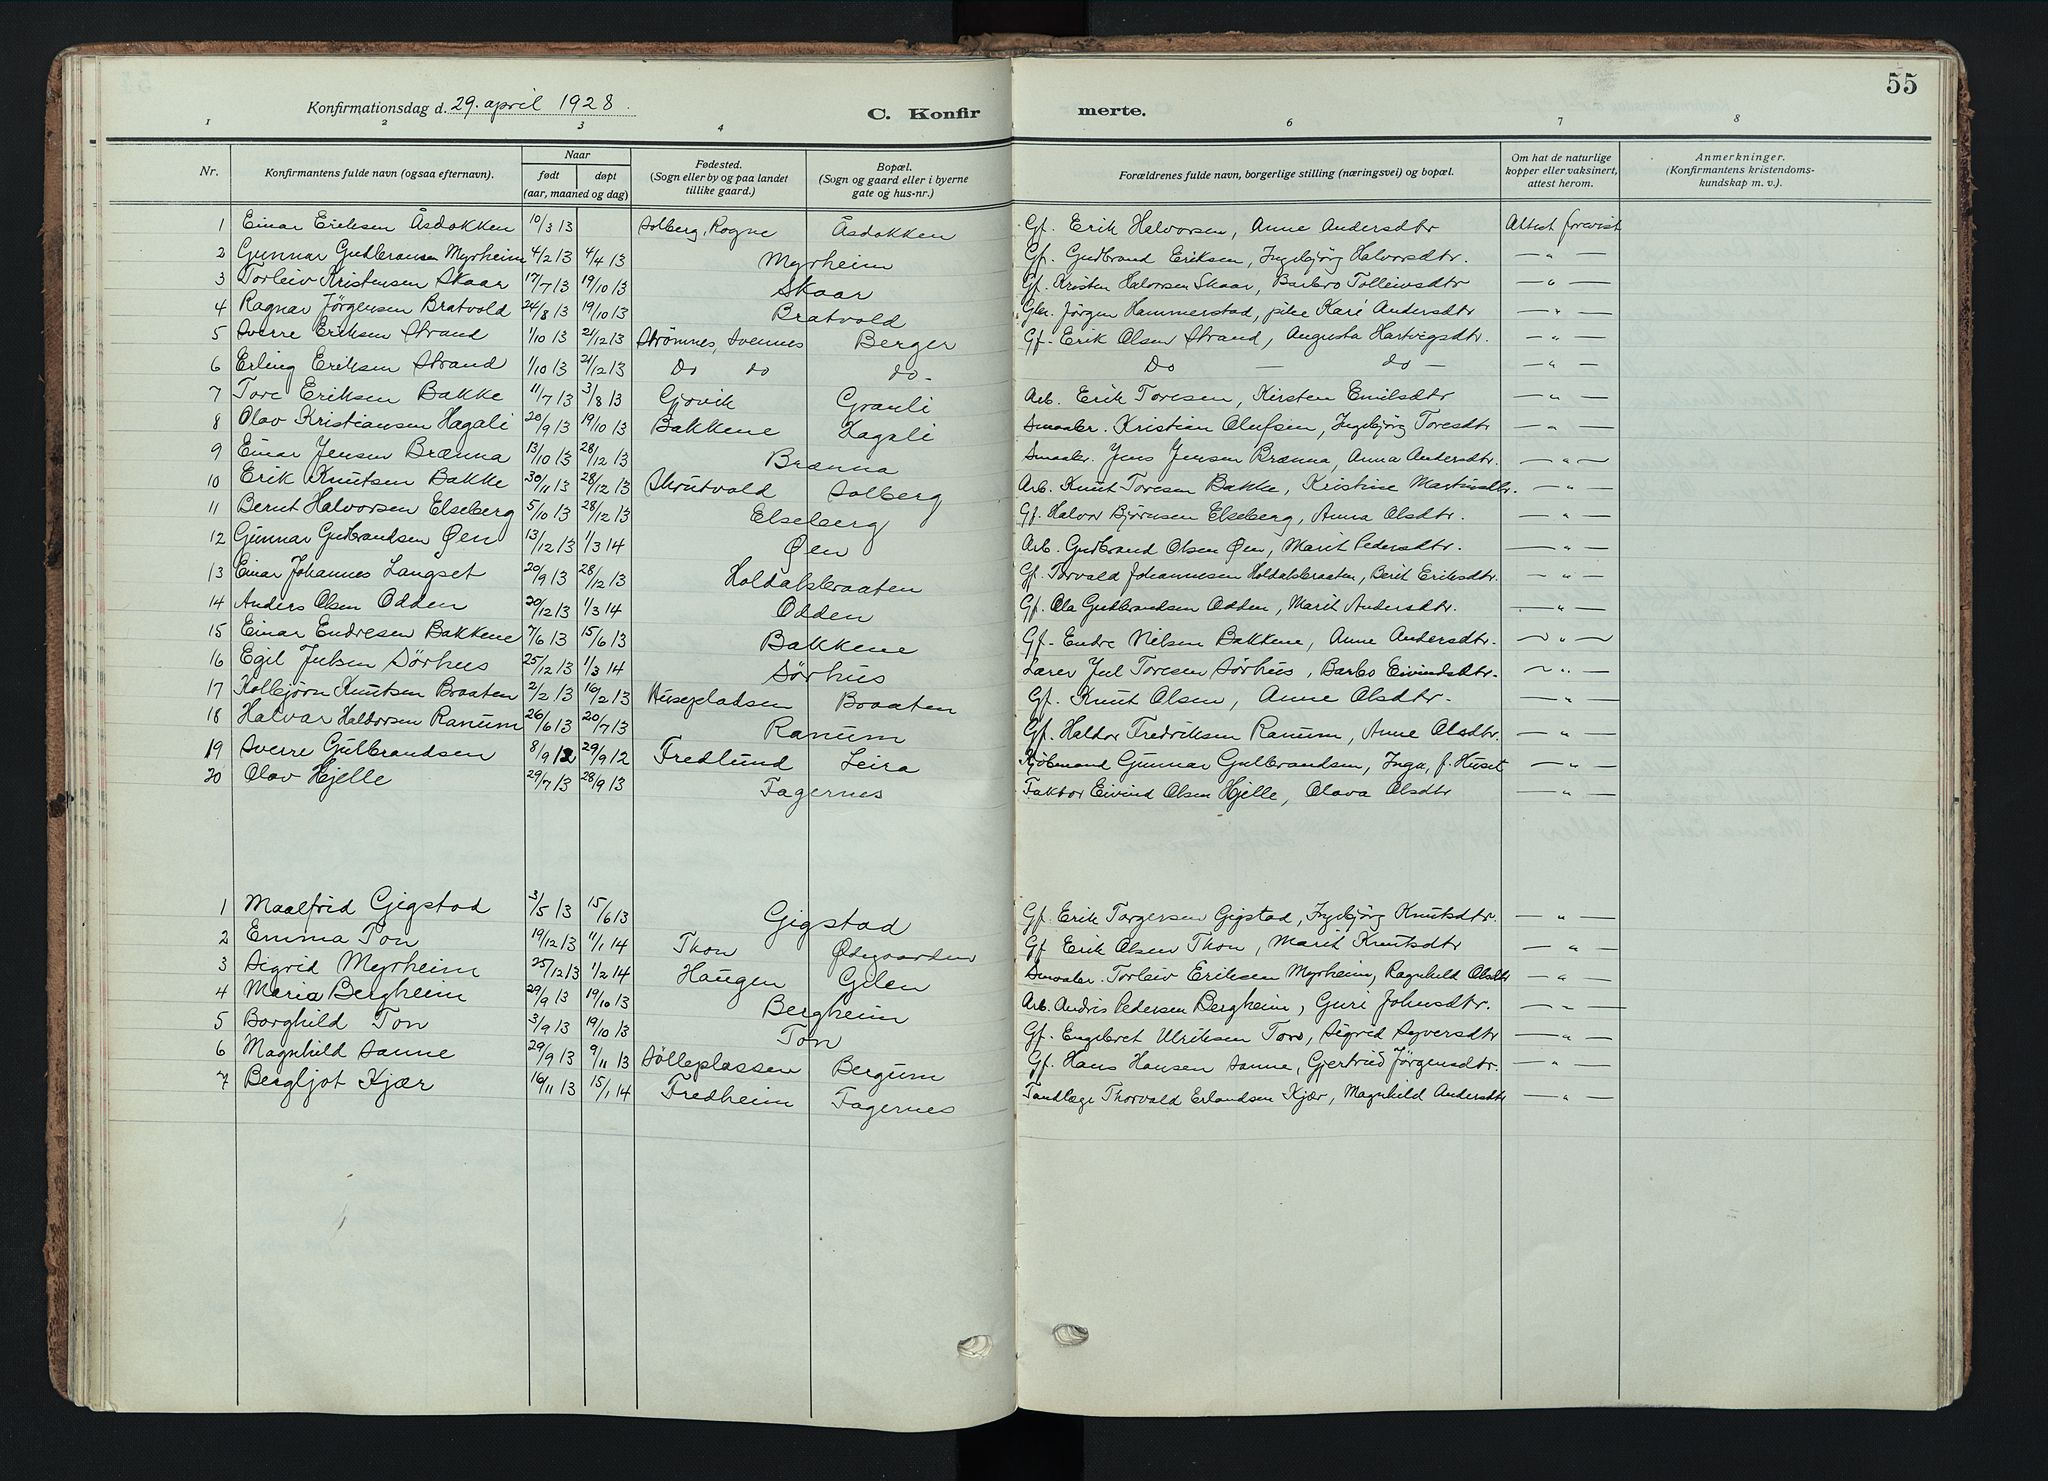 55
Konfirmationsdag d. 29. april 1928.
C. Konfirmerte.
1 2 3 4 6 7 8
Nr. Konfirmantens fulde navn (ogsaa efternavn). Naar født døpt (aar, maaned og dag) Fødested. (Sogn eller by og paa landet tillike gaard.) Bopæl. (Sogn og gaard eller i byerne gate og hus-nr.) Forældrenes fulde navn, borgerlige stilling (næringsvei) og bopæl. Om hat de naturlige kopper eller vaksinert, attest herom. Anmerkninger. (Konfirmantens kristendomskundskap m. v.).
1 Einar Eriksen Åsdokken 10/3 13 Solberg, Rogne Åsdokken Gf. Erik Halvorsen, Anne Andersdtr Attest forevist
2 Gunnar Gudbransen Myrheim 4/2 13 4/4 13 Myrheim Gf. Gudbrand Eriksen, Ingebjörg Halvorsdtr. — " —
3 Torleiv Kristensen Skaar 17/7 13 19/10 13 Skaar Gf. Kristen Halvorsen Skaar, Barbro Tolleivsdtr — " —
4 Ragnar Jørgensen Bratvold 24/8 13 19/10 13 Bratvold Jørgen Hammerstad, pike Kari Andersdtr — " —
5 Sverre Eriksen Strand 1/10 13 21/12 13 Strømnes, Svennes Berger Gf. Erik Olsen Strand, Augusta Hartvigsdtr. — " —
6 Erling Eriksen Strand 1/10 13 21/12 13 Do do do - Do — do — — " —
7 Tore Eriksen Bakke 11/7 13 3/8 13 Gjøvik Granli Arb. Erik Toresen, Kirsten Emilsdtr — " —
8 Olav Kristiansen Hagali 20/9 13 19/10 13 Bakkene Hagali Smaabr. Kristian Olufsen, Ingebjörg Toresdtr — " —
9 Einar Jensen Brænna 13/10 13 28/12 13 Brænna Smaabr. Jens Jensen Brænna, Anna Andersdtr. — " —
10 Erik Knutsen Bakke 30/11 13 28/12 13 Skrutvold Solberg Arb. Knut Toresen Bakke, Kristine Martinsdtr. — " —
11 Bernt Halvorsen Elseberg 5/10 13 28/12 13 Elseberg Gf. Halvor Bjørnsen Elseberg, Anna Olsdtr. — " —
12 Gunnar Gudbrandsen Øen 13/12 13 1/3 14 Øen Arb. Gudbrand Olsen Øen, Marit Pedersdtr. — " —
13 Einar Johannes Langset 20/9 13 28/12 13 Holdalsbraaten Gf. Torvald Johannesen Holdalsbraaten, Berit Eriksdtr. — " —
14 Anders Olsen Odden 20/12 13 1/3 14 Odden Gf. Ola Gudbrandsen Odden, Marit Andersdtr. — " —
15 Einar Endresen Bakkene 7/6 13 15/6 13 Bakkene Gf. Endre Nilsen Bakkene, Anne Andersdtr. — " —
16 Egil Julsen Sørhus 25/12 13 1/3 14 Sørhus Lærer Jul Toresen Sørhus, Barbo Eivindsdtr. — " —
17 Kolbjørn Knutsen Braaten 2/2 13 16/2 13 Husepladsen Braaten Gf. Knut Olsen, Anne Olsdtr. — " —
18 Halvar Haldorsen Ranum 26/6 13 20/7 13 Ranum Gf. Haldor Fredriksen Ranum, Anne Olsdtr. — " —
19 Sverre Gulbrandsen 8/9 12 29/9 12 Fredlund Leira Kjöbmand Gunnar Gulbrandsen, Inga, f. Huset — " —
20 Olav Hjelle 29/7 13 28/9 13 Fagernes Faktor Eivind Olsen Hjelle, Olava Olsdtr — " —
1 Maalfrid Gigstad 3/5 13 15/6 13 Gigstad Gf. Erik Torgersen Gigstad, Ingebjörg Knutsdtr. — " —
2 Emma Ton 19/12 13 11/1 14 Thon Ødegaarden Gf. Erik Olsen Thon, Marit Knutsdtr — " —
3 Sigrid Myrheim 25/12 13 1/2 14 Haugen Gilen Smaabr. Torleiv Eriksen Myrheim, Ragnhild Olsdtr — " —
4 Maria Bergheim 29/9 13 19/10 13 Bergheim Arb. Andris Pedersen Bergheim, Guri Johnsdtr. — " —
5 Borghild Ton 3/9 13 19/10 13 Ton Gf. Engebret Ulriksen Ton, Sigrid Syversdtr — " —
6 Magnhild Sanne 29/9 13 9/11 13 Sølleplassen Bergum Gf. Hans Hansen Sanne, Gjertrud Jørgensdtr. — " —
7 Bergljot Kjær 16/11 13 15/1 14 Fredheim Fagernes Tandlæge Thorvald Erlandsen Kjær, Magnhild Andersdtr — " —